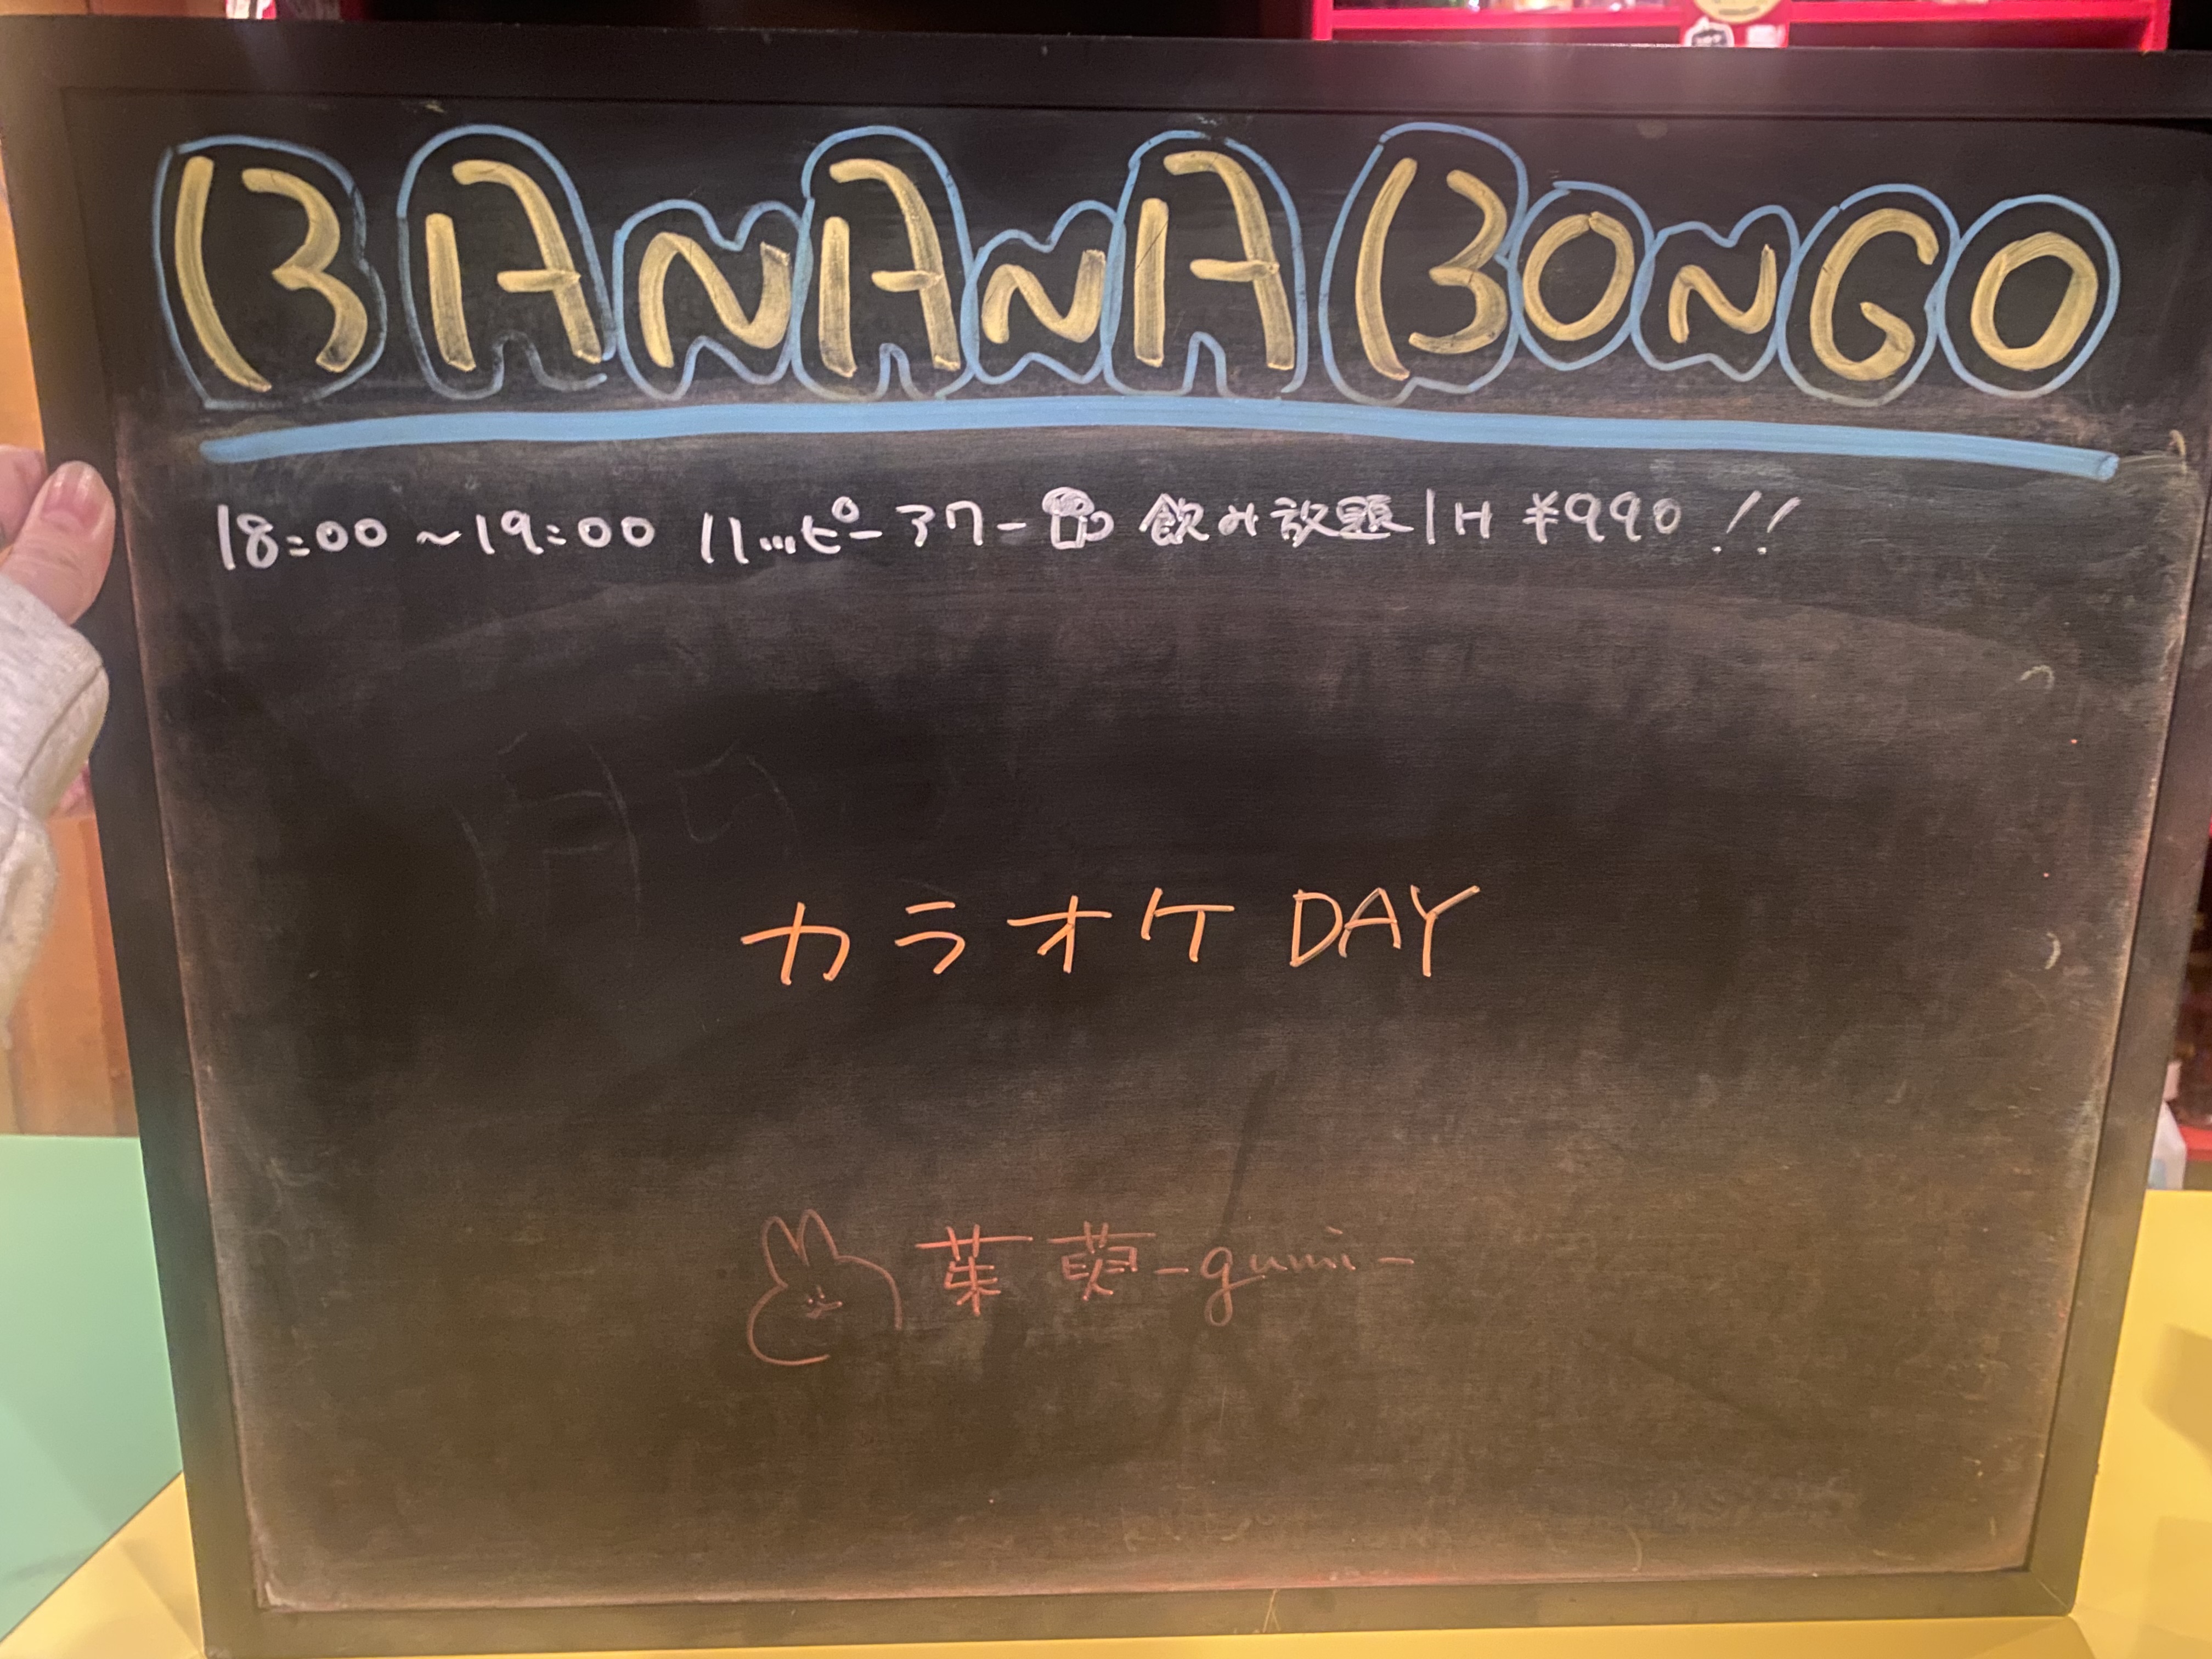 BANANA BONGO
18:00 ~19:00 ハッピーアワー 飲み放題 1H ¥990 !!
カラオケ DAY
茱萸 -gumi-